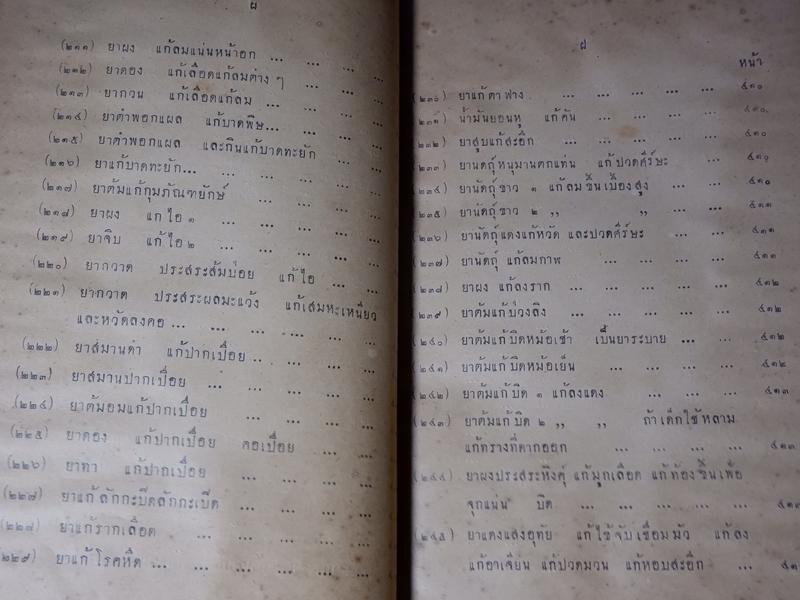 ผ
(๒๑๑) ยาผง แก้ลมแน่นหน้าอก ... ... ...
(๒๑๒) ยาดอง แก้เลือดแก้ลมต่าง ๆ ... ... ...
(๒๑๓) ยากวน แก้เลือดแก้ลม ... ... ... ...
(๒๑๔) ยาตำพอกแผล แก้บาดพิษ... ... ... ...
(๒๑๕) ยาตำพอกแผล และกินแก้บาดทะยัก ... ...
(๒๑๖) ยาแก้บาดทะยัก... ... ... ... ...
(๒๑๗) ยาต้มแก้กุมภัณฑยักษ์ ... ... ... ...
(๒๑๘) ยาผง แก้ไอ ๑ ... ... ... ...
(๒๑๙) ยาจิบ แก้ไอ ๒ ... ... ... ...
(๒๒๐) ยากวาด ประสระส้มป่อย แก้ไอ ... ... ...
(๒๒๑) ยากวาด ประสระผลมะแว้ง แก้เสมหะเหนียว
และหวัดลงคอ ... ... ... ... ... ...
(๒๒๒) ยาสมานดำ แก้ปากเปื่อย .. ... ... ...
(๒๒๓) ยาสมานปากเปื่อย ... ... ... ... ...
(๒๒๔) ยาต้มอมแก้ปากเปื่อย ... ... ... ...
(๒๒๕) ยาดอง แก้ปากเปื่อย คอเปื่อย ... ... ...
(๒๒๖) ยาทา แก้ปากเปื่อย ... ... ... ...
(๒๒๗) ยาแก้ลักกะปิดลักกะเปิด ... ... ... ...
(๒๒๘) ยาแก้รากเลือด ... ... ... ... ...
(๒๒๙) ยาแก้โรคหืด... ... ... ... ... ...
ฝ
หน้า
(๒๓๐) ยาแก้ตาฟาง ... ... ... ... ... ๔๑๐
(๒๓๑) น้ำมันยอนหู แก้คัน ... ... ... ... ๔๑๐
(๒๓๒) ยาสูบแก้สะอึก ... ... ... ... ... ๔๑๐
(๒๓๓) ยานัตถุ์หนุมานตกแท่น แก้ปวดศีร์ษะ ... ๔๑๐
(๒๓๔) ยานัตถุ์ขาว ๑ แก้ลมขึ้นเบื้องสูง ... ... ๔๑๐
(๒๓๕) ยานัตถุ์ขาว ๒ ,, ,, ... ... ๔๑๑
(๒๓๖) ยานัตถุ์แดงแก้หวัด และปวดศีร์ษะ ... ... ๔๑๑
(๒๓๗) ยานัตถุ์ แก้ลมกาฬ ... ... ... ... ๔๑๑
(๒๓๘) ยาผง แก้ลงราก ... ... ... ... ... ๔๑๒
(๒๓๙) ยาต้มแก้ป่วงลิง ... ... ... ... ๔๑๒
(๒๔๐) ยาต้มแก้บิดหม้อเช้า เป็นยาระบาย ... ... ๔๑๒
(๒๔๑) ยาต้มแก้บิดหม้อเย็น ... ... ... ... ๔๑๒
(๒๔๒) ยาต้มแก้บิด ๑ แก้ลงแดง ... ... ... ๔๑๓
(๒๔๓) ยาต้มแก้บิด ๒ ,, ,, ถ้าเด็กใช้หลาม
แก้ทรางที่ดากออก ... ... ... ... ๔๑๓
(๒๔๔) ยาผงประสระหิงคุ์ แก้มูกเลือด แก้ท้องขึ้นเฟ้อ
จุกแน่น บิด ... ... ... ... ...
(๒๔๕) ยาแดงแสงอุทัย แก้ไข้จับเชื่อมมัว แก้ลง
แก้อาเจียน แก้ปวดมวน แก้หอบสะอึก ... ...